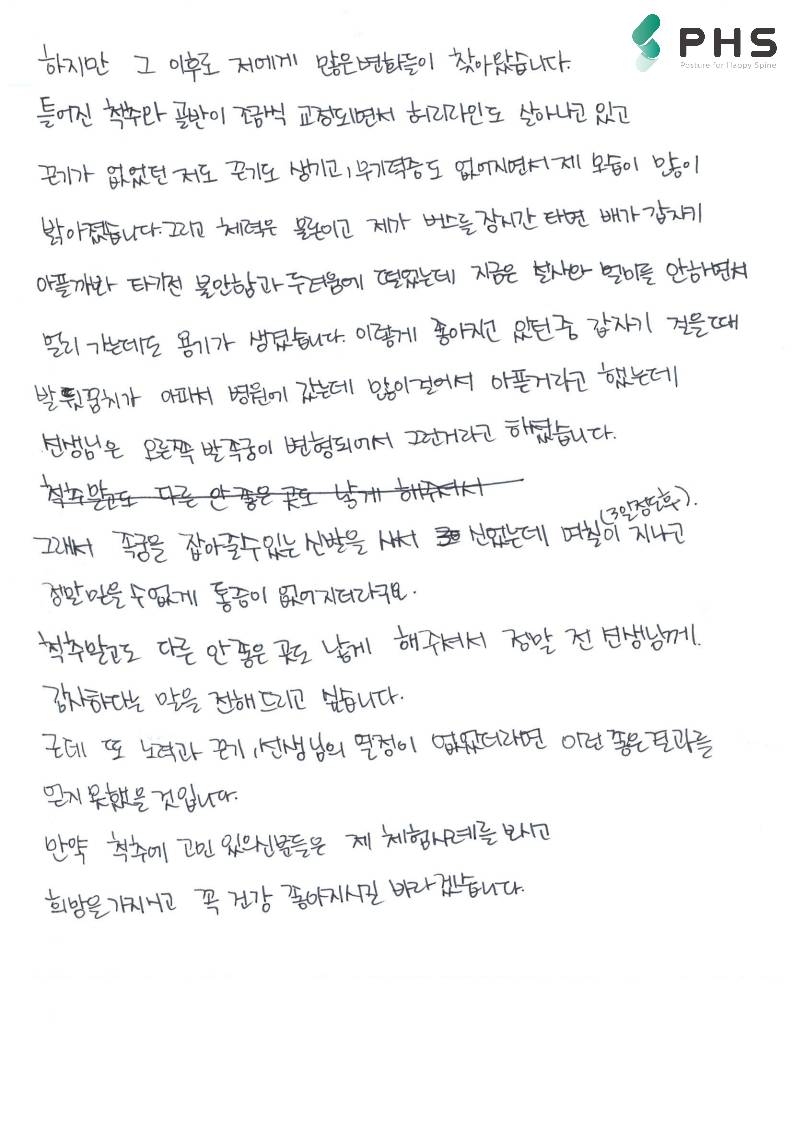 PHS
Posture for Happy Spine
하지만 그 이후로 저에게 많은변화들이 찾아왔습니다.
틀어진 척추와 골반이 조금씩 교정되면서 허리라인도 살아나고 있고
끈기가 없었던 저도 끈기도 생기고, 무기력증도 없어지면서 제 모습이 많이
밝아졌습니다. 그리고 체력은 물론이고 제가 버스를 장시간 타면 배가 갑자기
아플까봐 타기전 불안함과 두려움에 떨었는데 지금은 설사와 멀미를 안하면서
멀리 가는데도 용기가 생겼습니다. 이렇게 좋아지고 있던중 갑자기 걸을때
발뒷꿈치가 아파서 병원에 갔는데 많이걸어서 아픈거라고 했는데
선생님은 오른쪽 발족궁이 변형되어서 그런거라고 하셨습니다.
척추말고도 다른 안 좋은 곳도 낳게 해주셔서
그래서 족궁을 잡아줄수있는 신발을 사서 신었는데 며칠이 (3일정도후). 지나고
정말 믿을 수 없게 통증이 없어지더라구요.
척추말고도 다른 안 좋은 곳도 낳게 해주셔서 정말 전 선생님께.
감사하다는 말을 전해드리고 싶습니다.
근데 또 노력과 끈기, 선생님의 열정이 없었더라면 이런 좋은결과를
얻지 못했을 것입니다.
만약 척추에 고민 있으신분들은 제 체험사례를 보시고
희망을 가지시고 꼭 건강 좋아지시길 바라겠습니다.